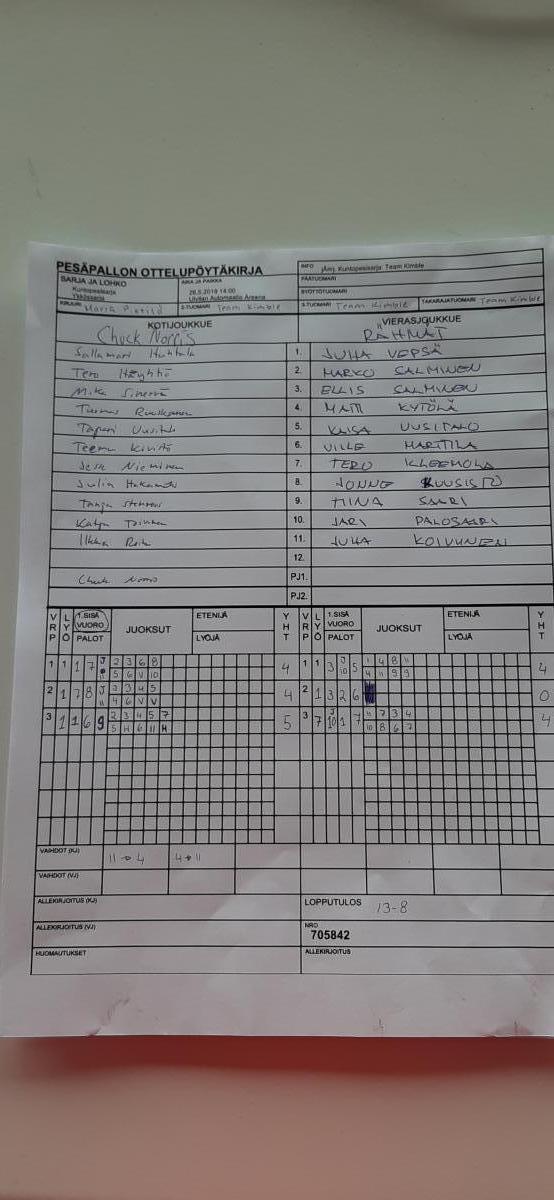 PESÄPALLON OTTELUPÖYTÄKIRJA
INFO jÄmj. Kuntopesisarja: Team Kimble
SARJA JA LOHKO Kuntopesisarja Ykkössarja
AIKA JA PAIKKA 26.5.2019 14:00 Ulvilan Automaatio Areena
PÄÄTUOMARI
SYÖTTÖTUOMARI
KIRJURI Maria
2-TUOMARI Team Kimble
3-TUOMARI Team Kimble
TAKARAJATUOMARI Team Kimble
KOTIJOUKKUE Chuck Norris
VIERASJOUKKUE RÄHMÄT
Sallamari Huhtala 1. JUHA VEPSÄ
Tero Häyhtiö 2. MARKO SALMINEN
Mika 3. ELLIS SALMINEN
4. MATTI KYTÖLÄ
Tapani Uusitalo 5. KAISA UUSITALO
Teemu Kivistö 6. VILLE MARTTILA
Jere Nieminen 7. TERO KLEEMOLA
Julia 8. JONNE KUUSISTO
Tanja 9. TIINA SAARI
Katja Toivonen 10. JARI PALOSAARI
Ilkka 11. JUHA KOIVUNEN
12.
Chuck Norris PJ1.
PJ2.
VRP LYÖ 1.SISÄ VUORO PALOT JUOKSUT ETENIJÄ LYÖJÄ YHT VRP LYÖ 1.SISÄ VUORO PALOT JUOKSUT ETENIJÄ LYÖJÄ YHT
1 1 1 7 J 11 2 3 6 8 4 1 1 3 J 10 5 1 4 8 11 4
5 6 V 10 4 11 9 9
2 1 7 8 J 11 2 3 4 5 4 2 1 3 2 6 0
4 6 V V
3 1 1 6 9 2 3 4 5 7 5 3 7 J 10 1 7 11 7 3 4 4
5 H 6 11 H 10 8 6 7
VAIHDOT (KJ) 11→4 4→11
VAIHDOT (VJ)
ALLEKIRJOITUS (KJ) LOPPUTULOS 13-8
ALLEKIRJOITUS (VJ) NRO 705842
HUOMAUTUKSET ALLEKIRJOITUS